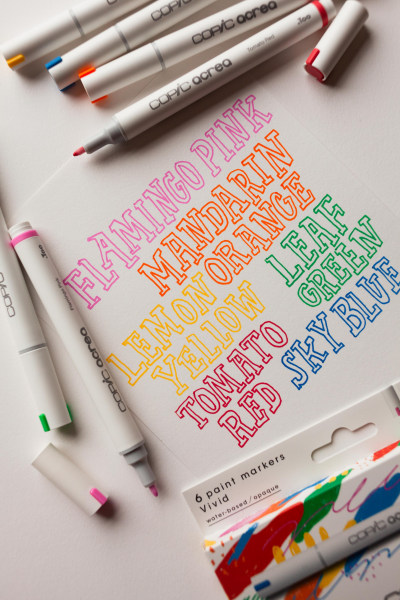 COPIC acrea
COPIC acrea
COPIC acrea
COPIC acrea Tomato Red
FLAMINGO PINK
MANDARIN
ORANGE
LEAF
GREEN
LEMON
YELLOW
SKY BLUE
TOMATO
RED
COPIC
COPIC acrea
6 paint markers
Vivid
water-based / opaque
COPIC